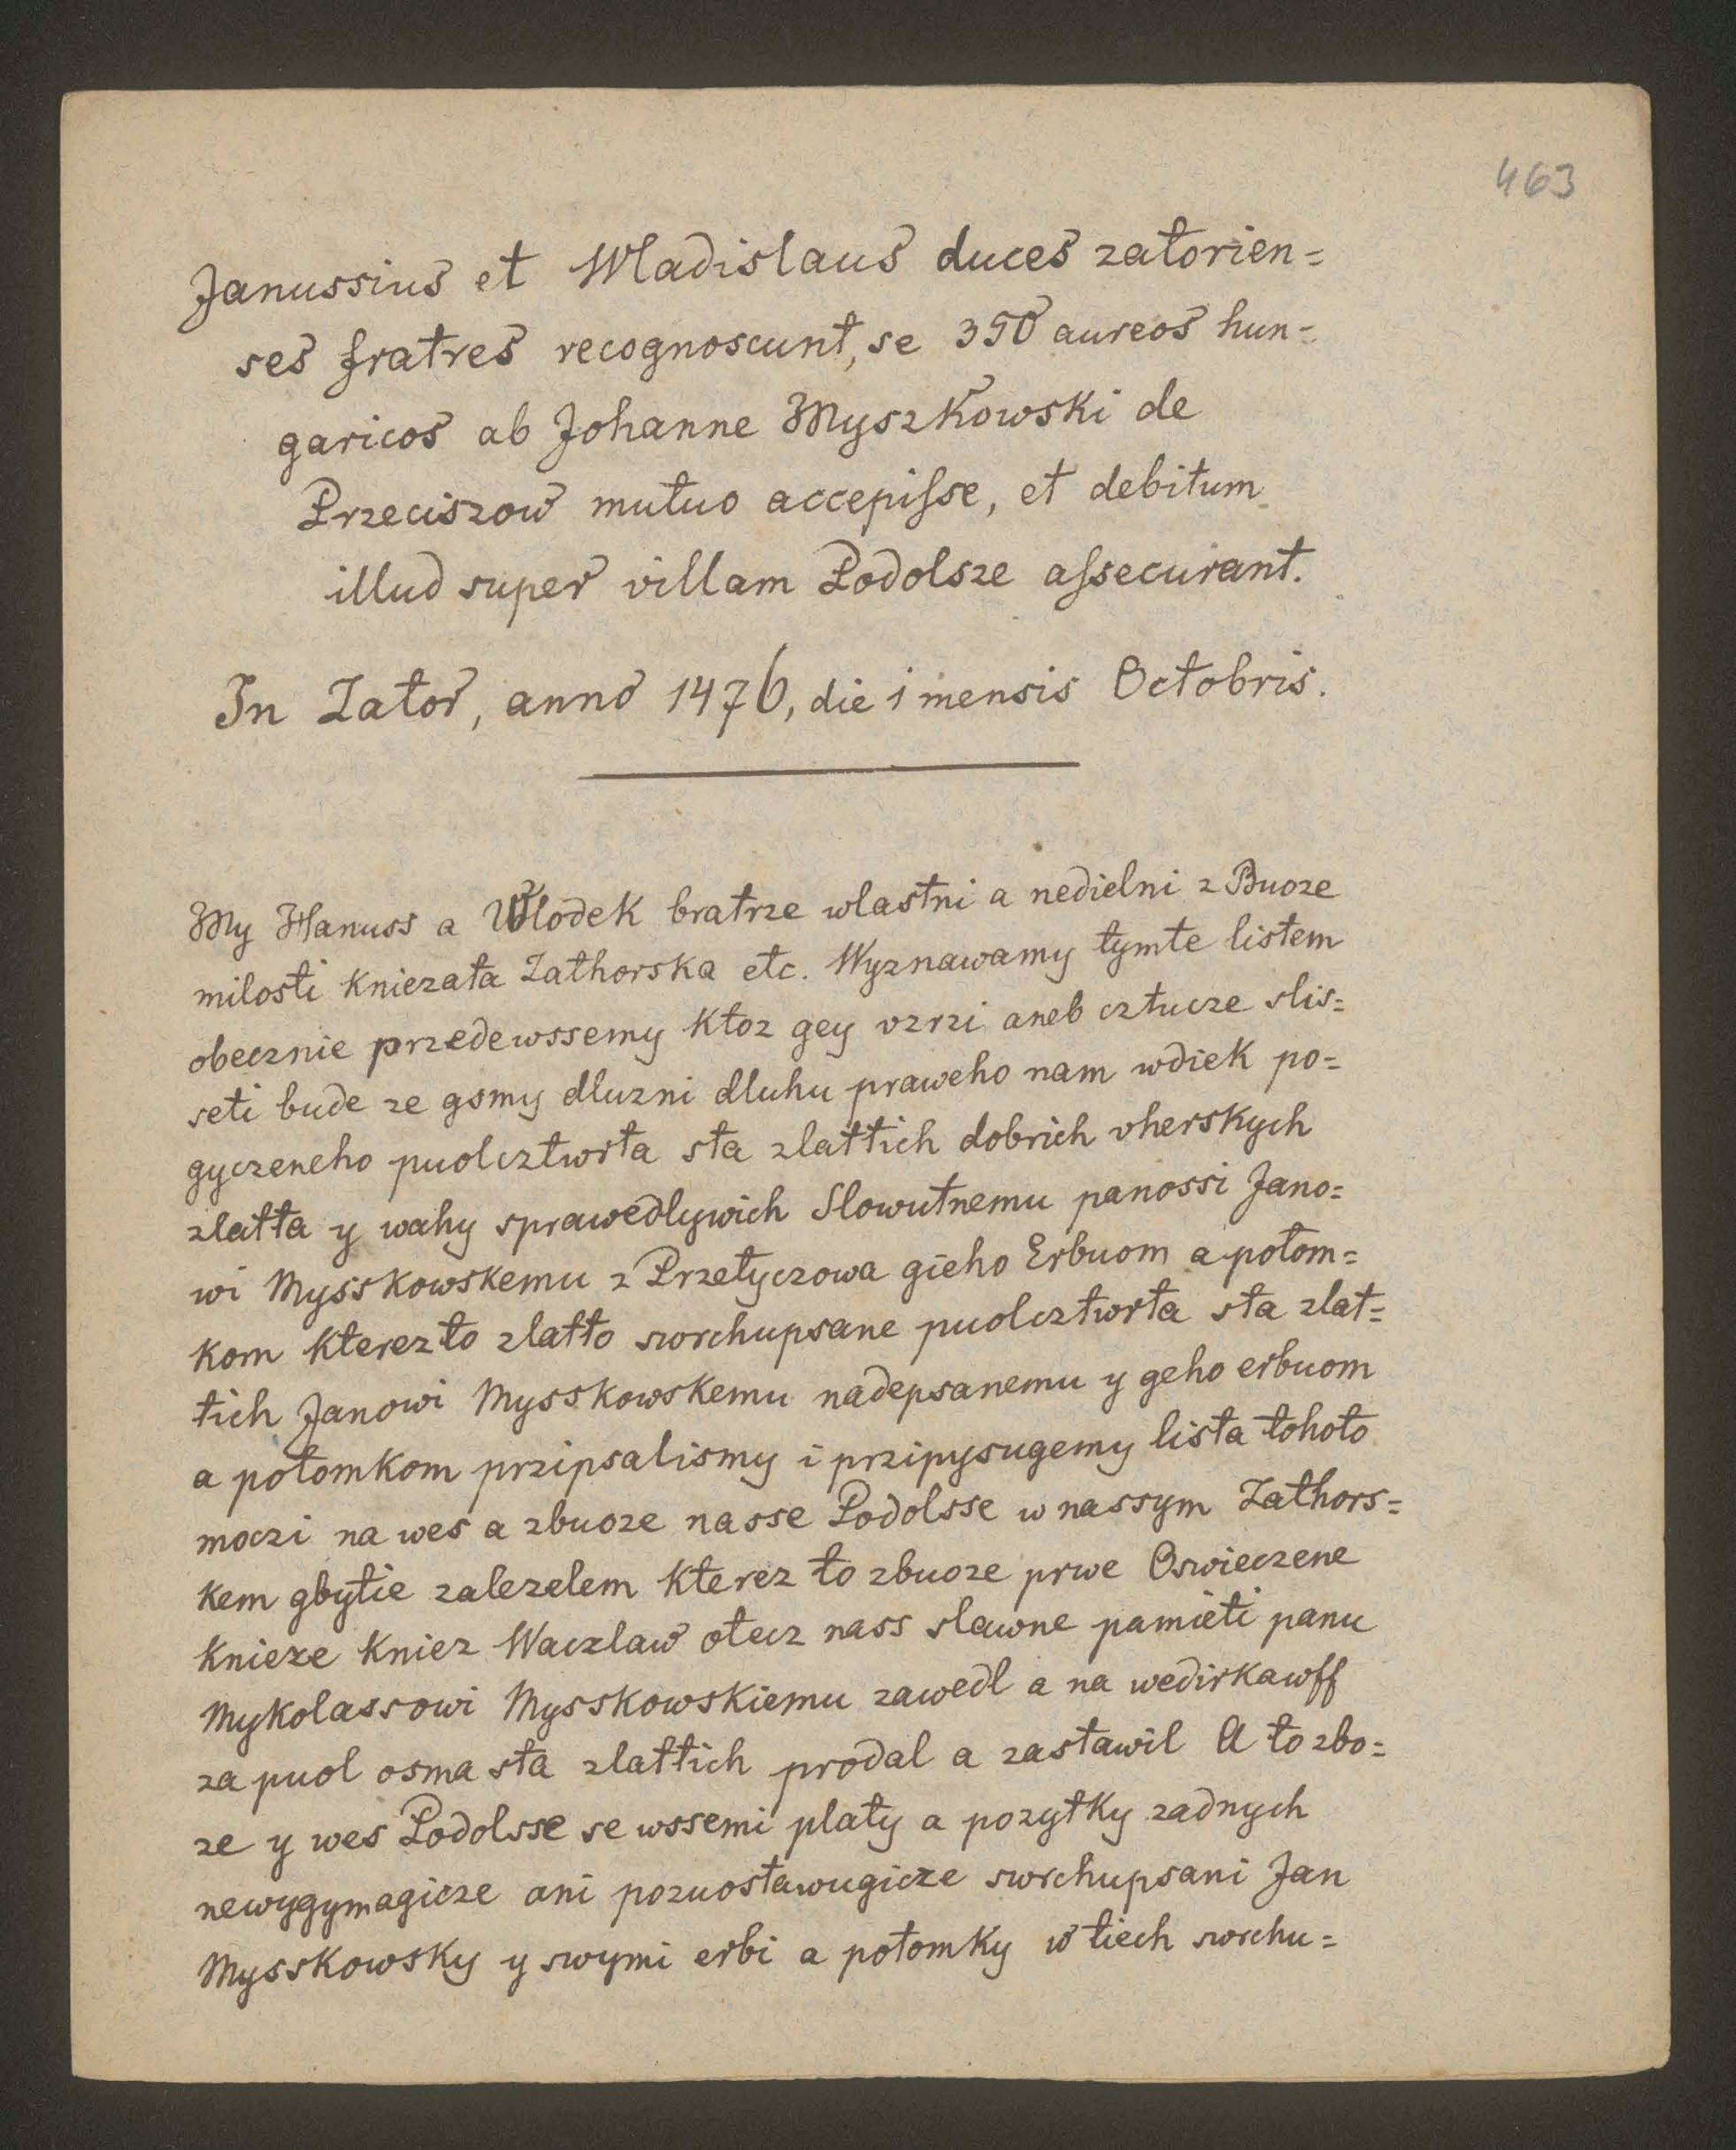 463
Janussius et Wladislaus duces zatorien=
ses fratres recognoscunt, se 350 aureos hun=
garicos ab Johanne Myszkowski de
Przeciszow mutuo accepiſse, et debitum
illud super villam Podolsze aſsecurant.
In Zator, anno 1476, die 1 mensis Octobris.
My Hanuss a Wlodek bratrze wlastni a nedielni z Buoze
milosti kniezata Zathorska etc. Wyznawamy tymte listem
obecznie przedewssemy ktoz gey vzrzi aneb cztucze slis=
seti bude ze gsmy dluzni dluhu praweho nam wdiek po=
gyczeneho puolcztwrta sta zlattich dobrich vherskych
zlatta y wahy sprawedlywich Slowutnemu panossi Jano=
wi Mysskowskemu z Przetyczowa gieho Erbuom a potom=
kom kterezto zlatto swrchupsane puolcztwrta sta zlat=
tich Janowi Mysskowskemu nadepsanemu y geho erbuom
a potomkom przipsalismy i przipysugemy lista tohoto
moczi na wes a zbuoze nasse Podolsse w nassym Zathors=
kem gbytie zalezelem kterez to zbuoze prwe Oswieczene
knieze kniez Waczlaw otecz nass slawne pamieti panu
Mykolassowi Mysskowskiemu zawedl a na wedirkawff
za puol osma sta zlattich prodal a zastawil A to zbo=
ze y wes Podolsse se wssemi platy a pozytky zadnych
newygymagicze ani pozuostawugicze swrchupsani Jan
Mysskowsky y swymi erbi a potomky w tiech swrchu=